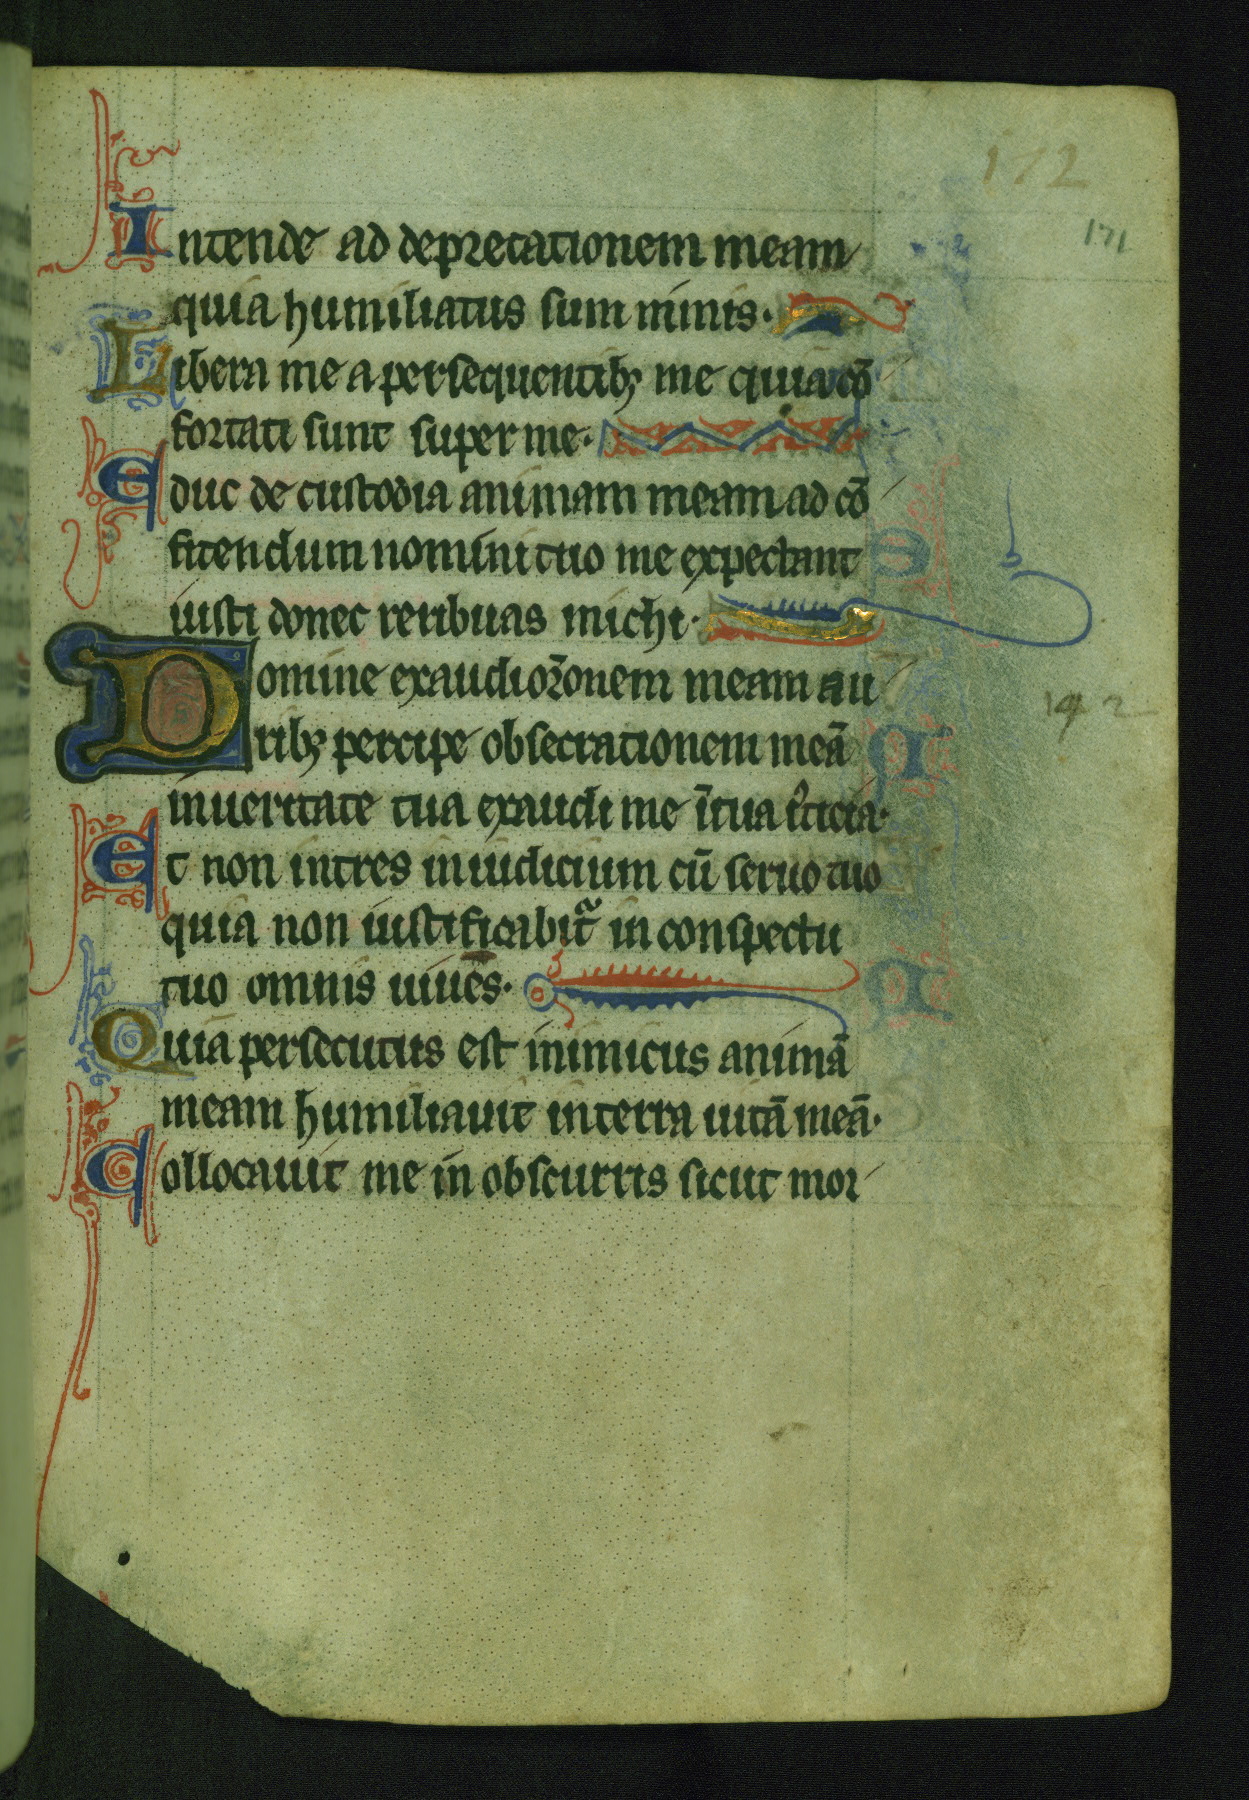 172
171
Intende ad deprecationem meam
quia humiliatus sum nimis.
Libera me a persequentibꝫ me quia cõ
fortati sunt super me.
Educ de custodia animam meam ad cõ
fitendum nomini tuo me expectant
iusti donec retribuas michi.
Domine exaudi or̃onem meam au
142
ribꝫ percipe obsecrationem meã
in ueritate tua exaudi me ĩ tua
Et non intres in iudicium cũ seruo tuo
quia non iustificabit᷑ in conspectu
tuo omnis uiuẽs.
Quia persecutus est inimicus animã
meam humiliauit in terra uitã meã.
Collocauit me in obscuris sicut mor